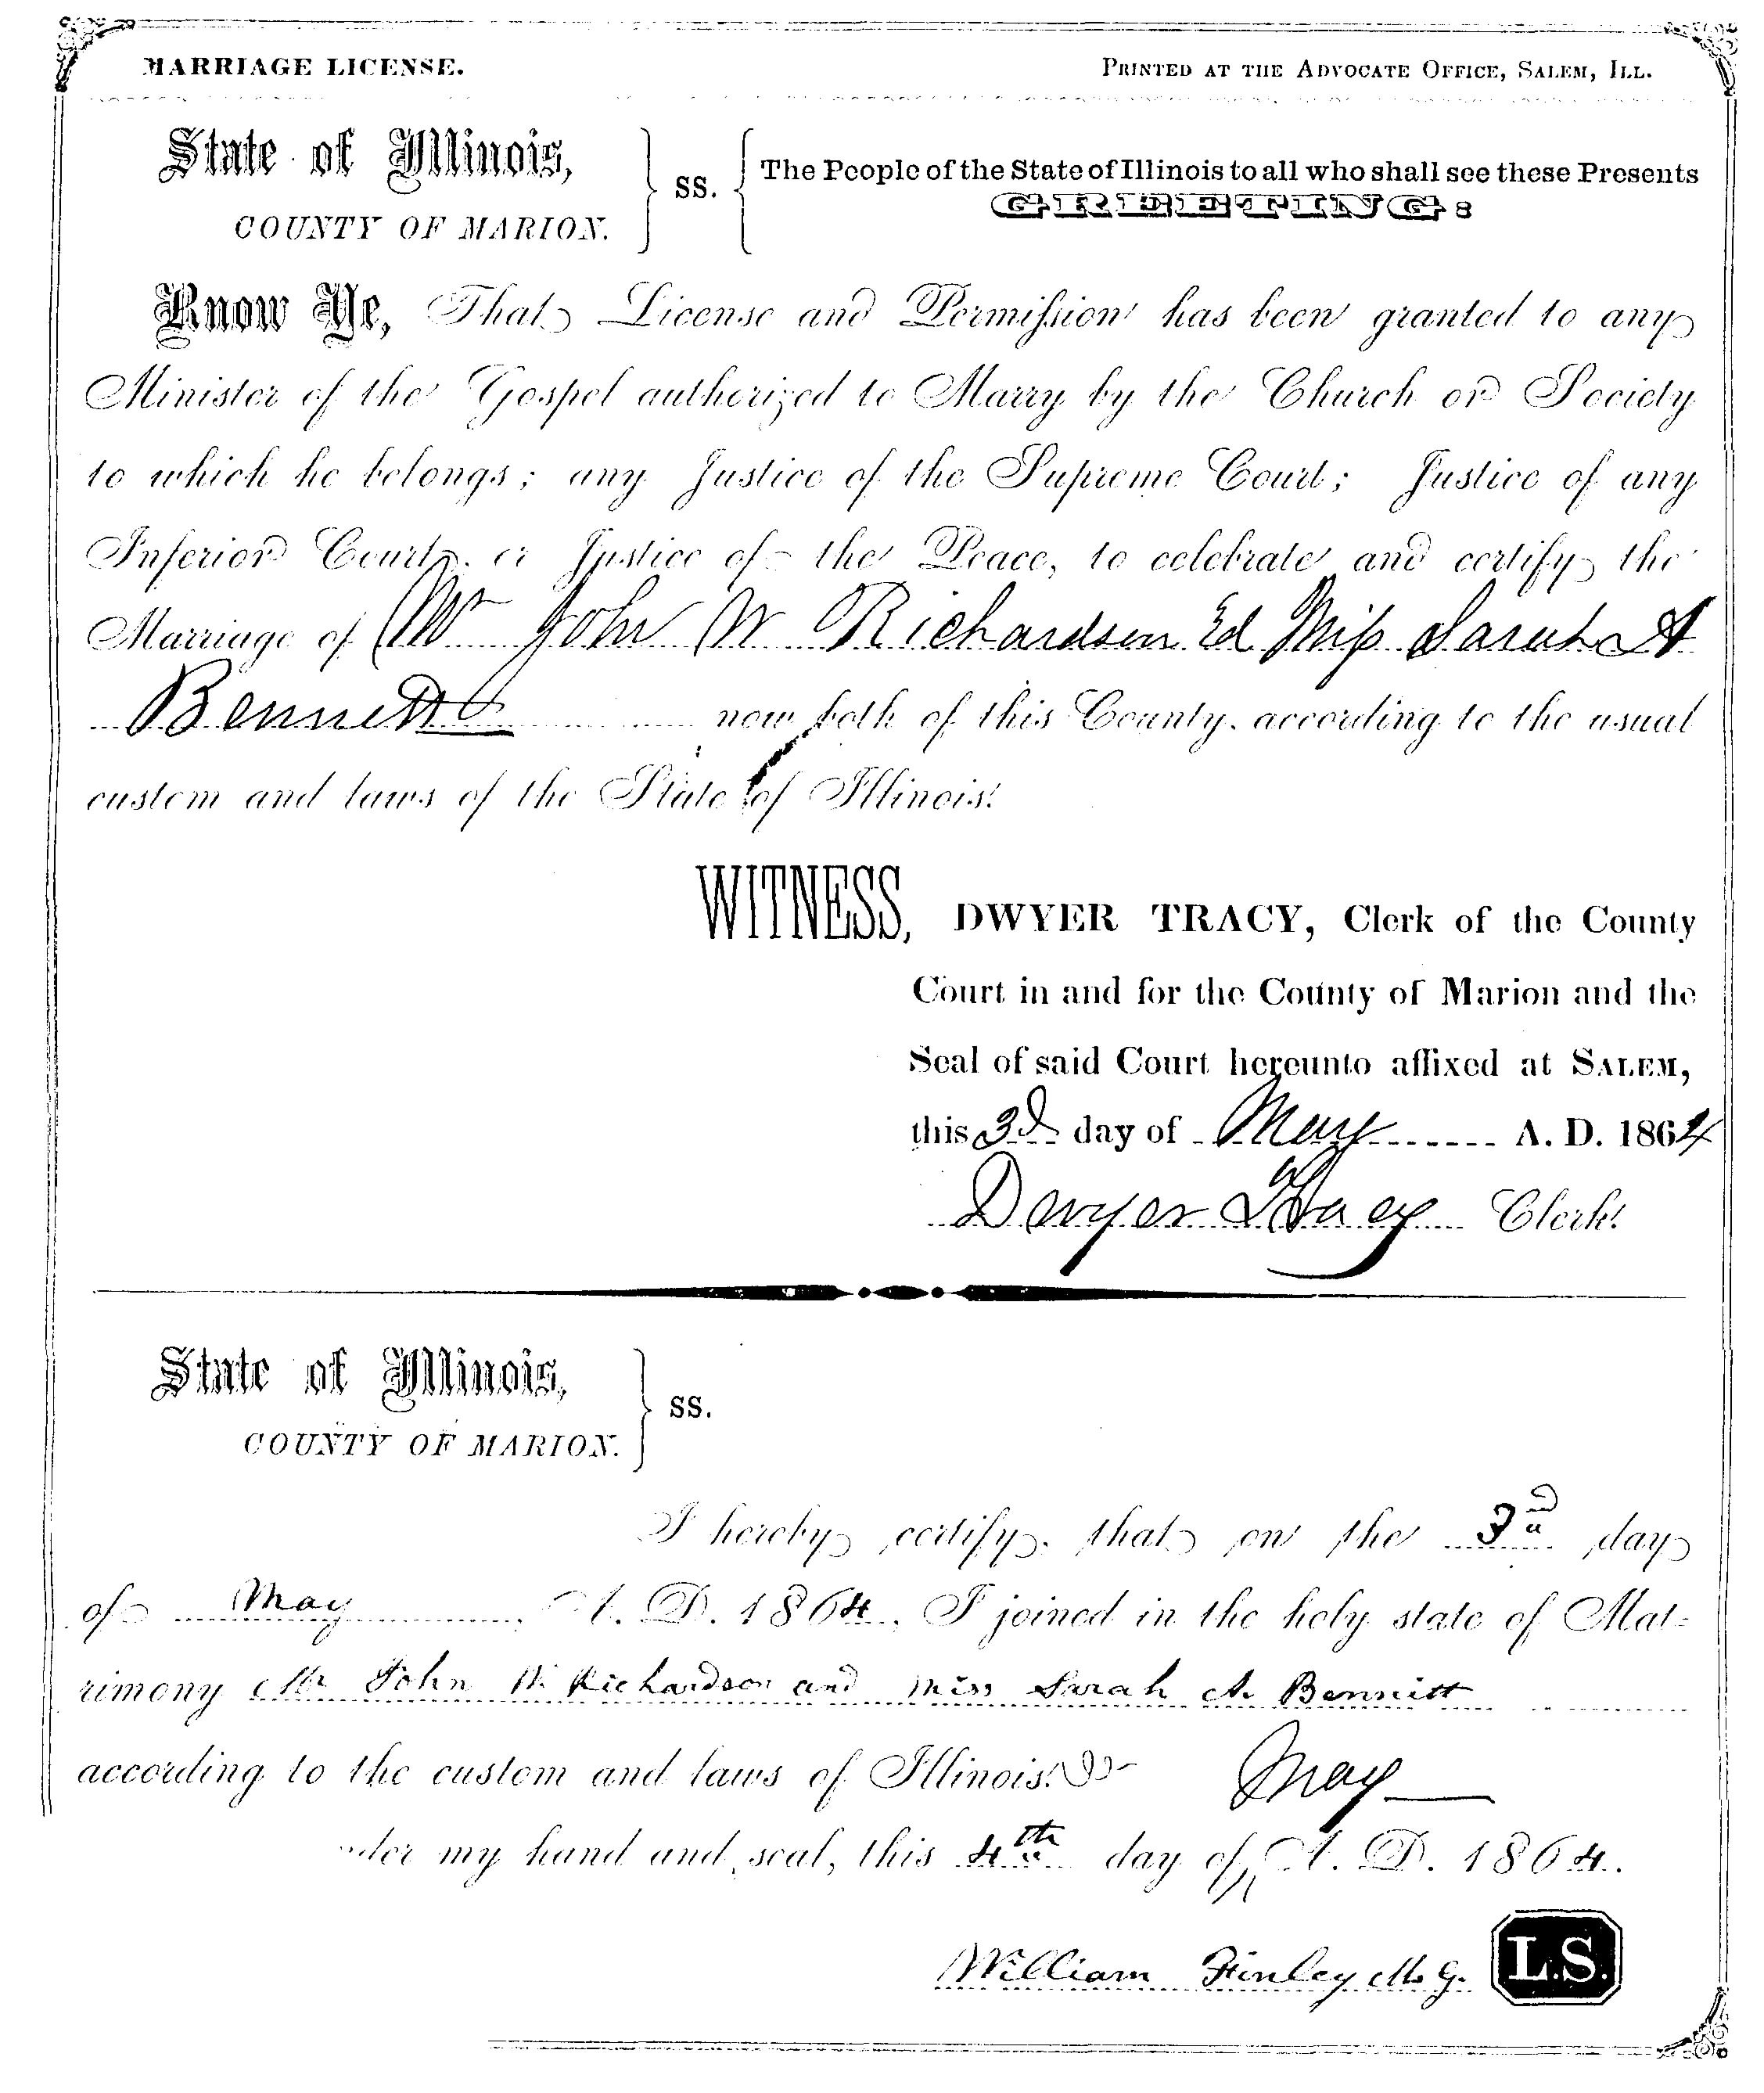 MARRIAGE LICENSE. PRINTED AT THE ADVOCATE OFFICE, SALEM, ILL.
State of Illinois, ss. The People of the State of Illinois to all who shall see these Presents
COUNTY OF MARION. GREETING:
Know Ye, That License and Permission has been granted to any
Minister of the Gospel authorized to Marry by the Church or Society
to which he belongs; any Justice of the Supreme Court; Justice of any
Inferior Court, or Justice of the Peace, to celebrate and certify the
Marriage of Mr John W Richardson Miss Sarah A
Bennett now both of this County, according to the usual
custom and laws of the State of Illinois.
WITNESS, DWYER TRACY, Clerk of the County
Court in and for the County of Marion and the
Seal of said Court hereunto affixed at SALEM,
this 3d day of May A. D. 1864
Dwyer Tracy Clerk.
State of Illinois, ss.
COUNTY OF MARION.
I hereby certify, that on the 3rd day
of May, A. D. 1864, I joined in the holy state of Mat-
rimony Mr John W. Richardson and Miss Sarah A. Bennitt
according to the custom and laws of Illinois. May
my hand and seal, this 4th day of A. D. 1864.
William Finley M. G. L.S.